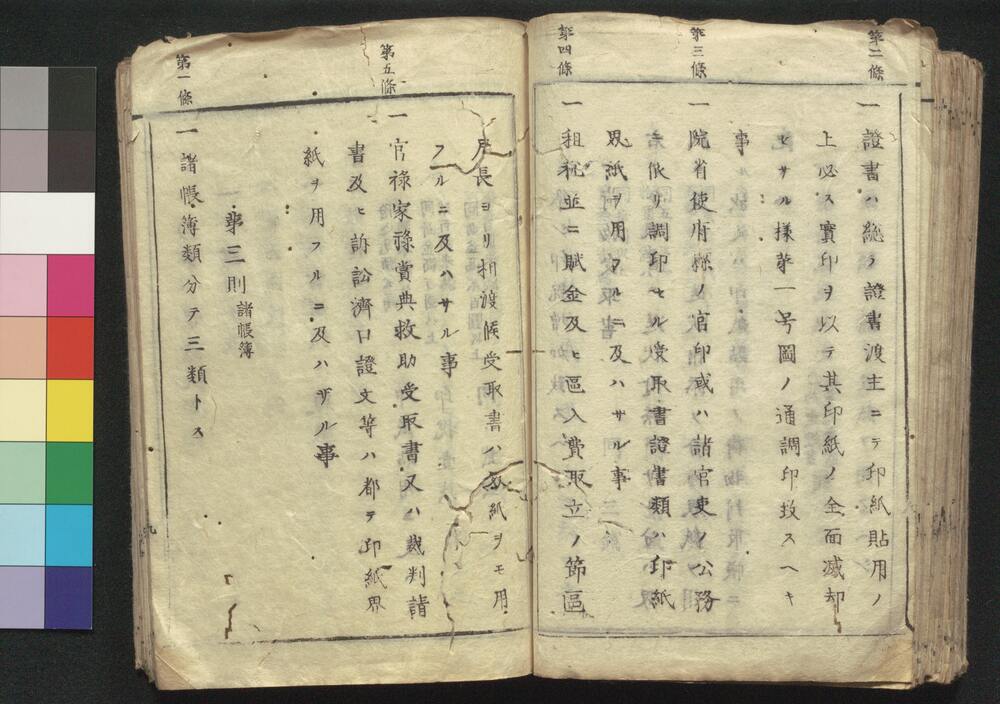 第二條
一證書ハ総テ證書渡主ニテ印紙貼用ノ
上必ス實印ヲ以テ其印紙ノ全面滅却
セサル様第一号圖ノ通調印致スヘキ
事
第三條
一院省使府縣ノ官印或ハ諸官吏ノ公務
ニ依リ調印セル受取書證書類ハ印紙
界紙ヲ用フルニ及ハサル事
第四條
一租税並ニ賦金及ヒ區入費取立ノ節區
戸長ヨリ相渡候受取書ハ界紙ヲモ用
フルニ及ハサル事
第五條
一官禄家禄賞典救助受取書又ハ裁判諸
書及ヒ訴訟濟口證文等ハ都テ印紙界
紙ヲ用フルニ及ハザル事
第三則 諸帳簿
第一條
一諸帳簿類分テ三類トス
九